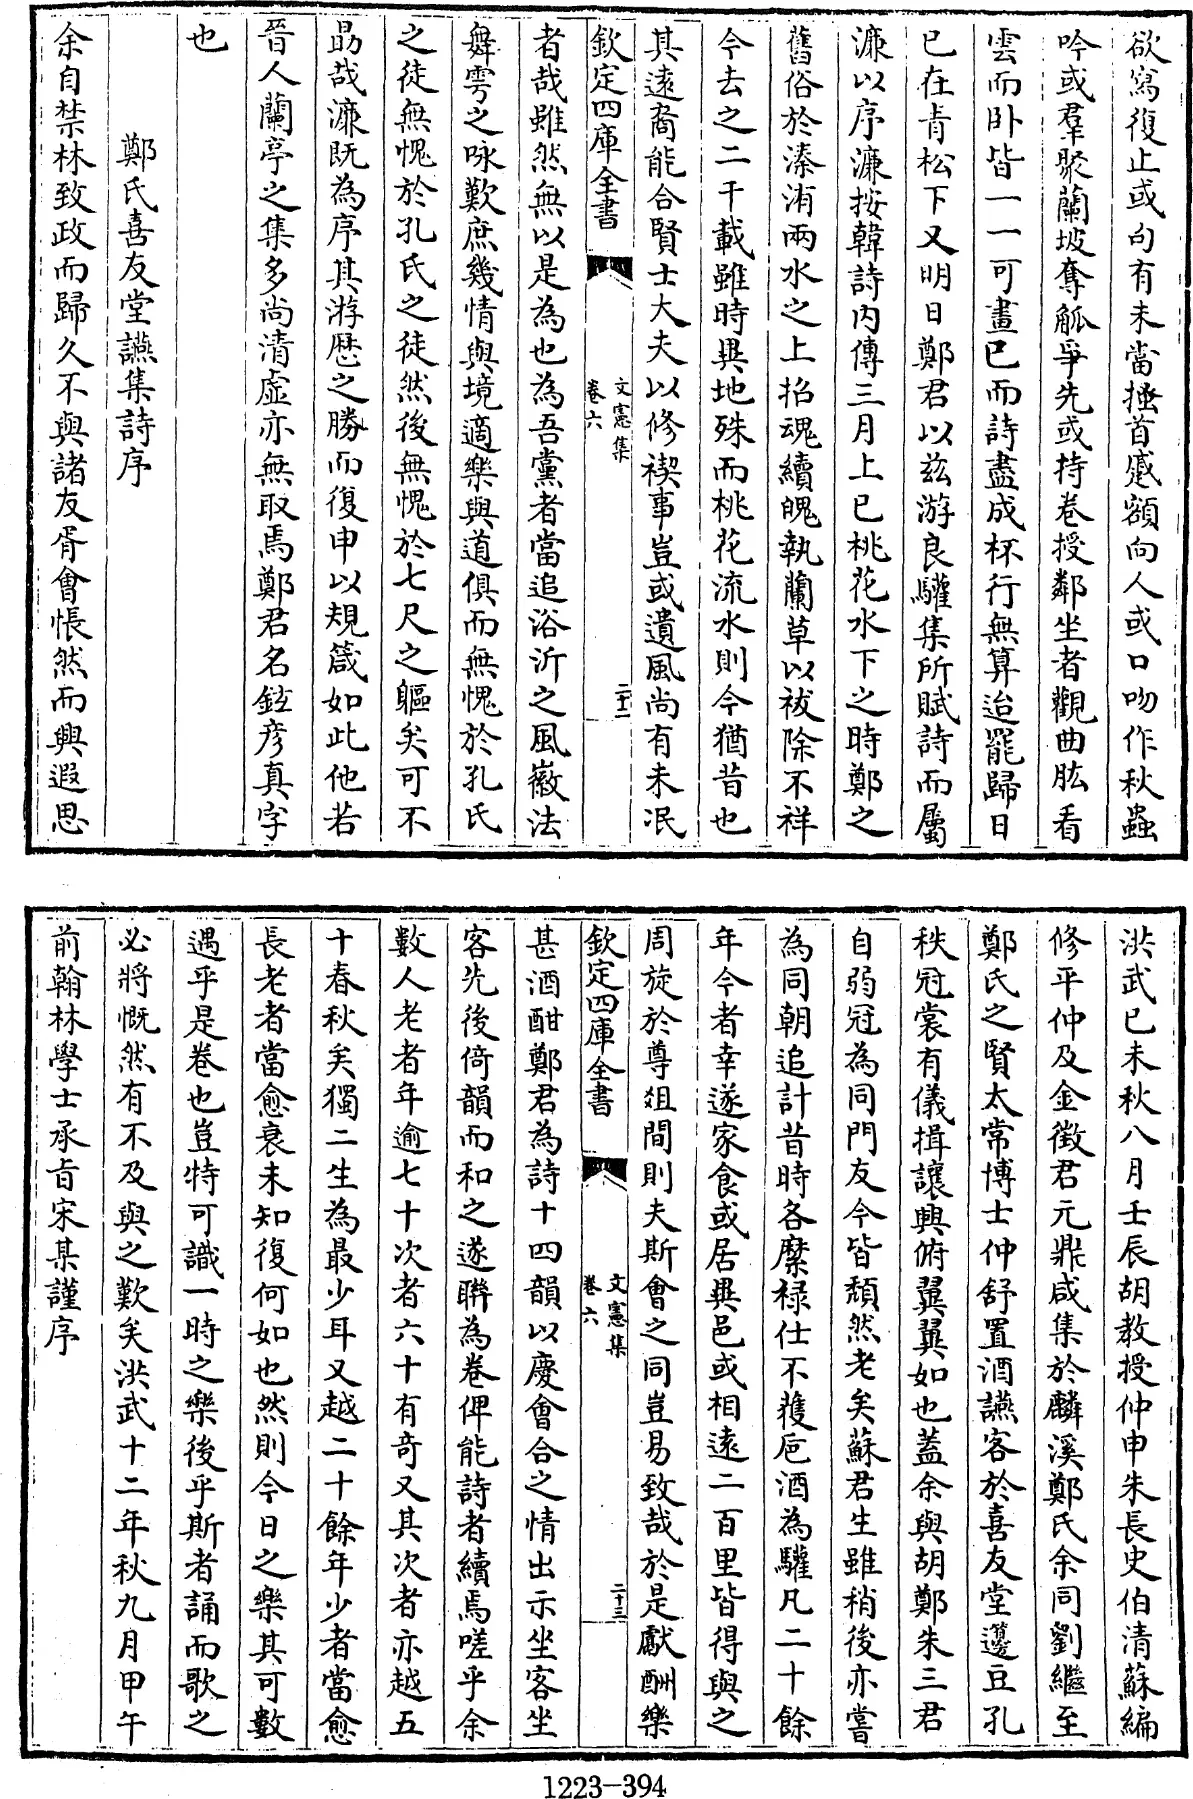 欲寫復止或句有未當搔首蹙額向人或口吻作秋蟲
吟或羣聚蘭坡奪觚爭先或持卷授鄰坐者觀曲肱看
雲而卧皆一一可畫已而詩盡成杯行無算迨罷歸日
已在青松下又明日鄭君以兹游良驩集所賦詩而屬
濂以序濂按韓詩内傳三月上巳桃花水下之時鄭之
舊俗於溱洧兩水之上招魂續魄執蘭草以祓除不祥
今去之二千載雖時異地殊而桃花流水則今猶昔也
其遠裔能合賢士大夫以修禊事豈或遺風尚有未泯
欽定四庫全書
文憲集
卷六
二十二
者哉雖然無以是為也為吾黨者當追浴沂之風徽法
舞雩之咏歎庶幾情與境適樂與道俱而無愧於孔氏
之徒無愧於孔氏之徒然後無愧於七尺之軀矣可不
勗哉濂既為序其游歴之勝而復申以規箴如此他若
晉人蘭亭之集多尚清虚亦無取焉鄭君名鉉彦真字
也
鄭氏喜友堂讌集詩序
余自禁林致政而歸久不與諸友胥會悵然而興遐思
洪武已未秋八月壬辰胡教授仲申朱長史伯清蘇編
修平仲及金徵君元鼎咸集於麟溪鄭氏余同劉繼至
鄭氏之賢太常博士仲舒置酒讌客於喜友堂籩豆孔
秩冠裳有儀揖讓興俯翼翼如也蓋余與胡鄭朱三君
自弱冠為同門友今皆頹然老矣蘇君生雖稍後亦嘗
為同朝追計昔時各縻禄仕不獲巵酒為驩凡二十餘
年今者幸遂家食或居異邑或相遠二百里皆得與之
周旋於尊俎間則夫斯會之同豈易致哉於是獻酬樂
欽定四庫全書
文憲集
卷六
二十三
甚酒酣鄭君為詩十四韻以慶會合之情出示坐客坐
客先後倚韻而和之遂聨為卷俾能詩者續焉嗟乎余
數人老者年逾七十次者六十有奇又其次者亦越五
十春秋矣獨二生為最少耳又越二十餘年少者當愈
長老者當愈衰未知復何如也然則今日之樂其可數
遇乎是卷也豈特可識一時之樂後乎斯者誦而歌之
必將慨然有不及與之歎矣洪武十二年秋九月甲午
前翰林學士承旨宋某謹序
1223-394